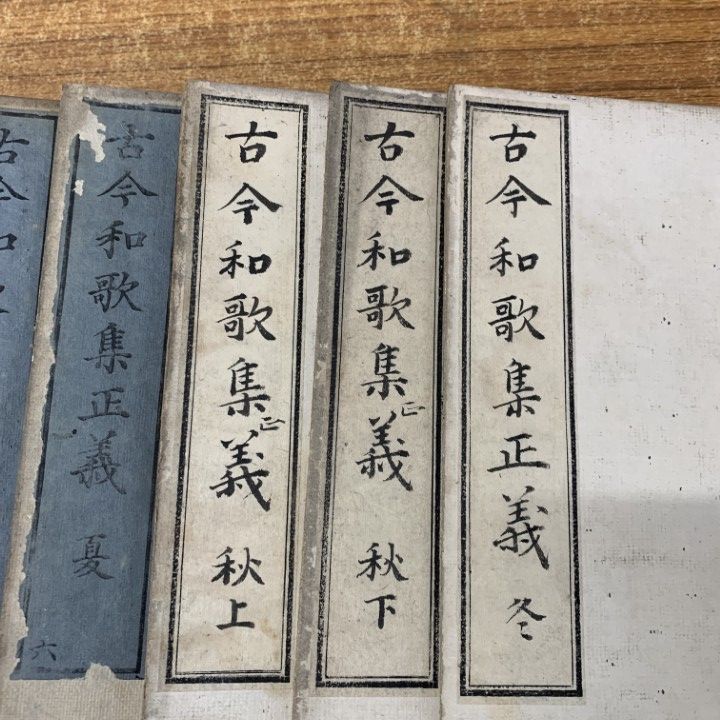 古今和
古今和歌集正義 夏
六
古今和歌集正義 秋上
古今和歌集正義 秋下
古今和歌集正義 冬